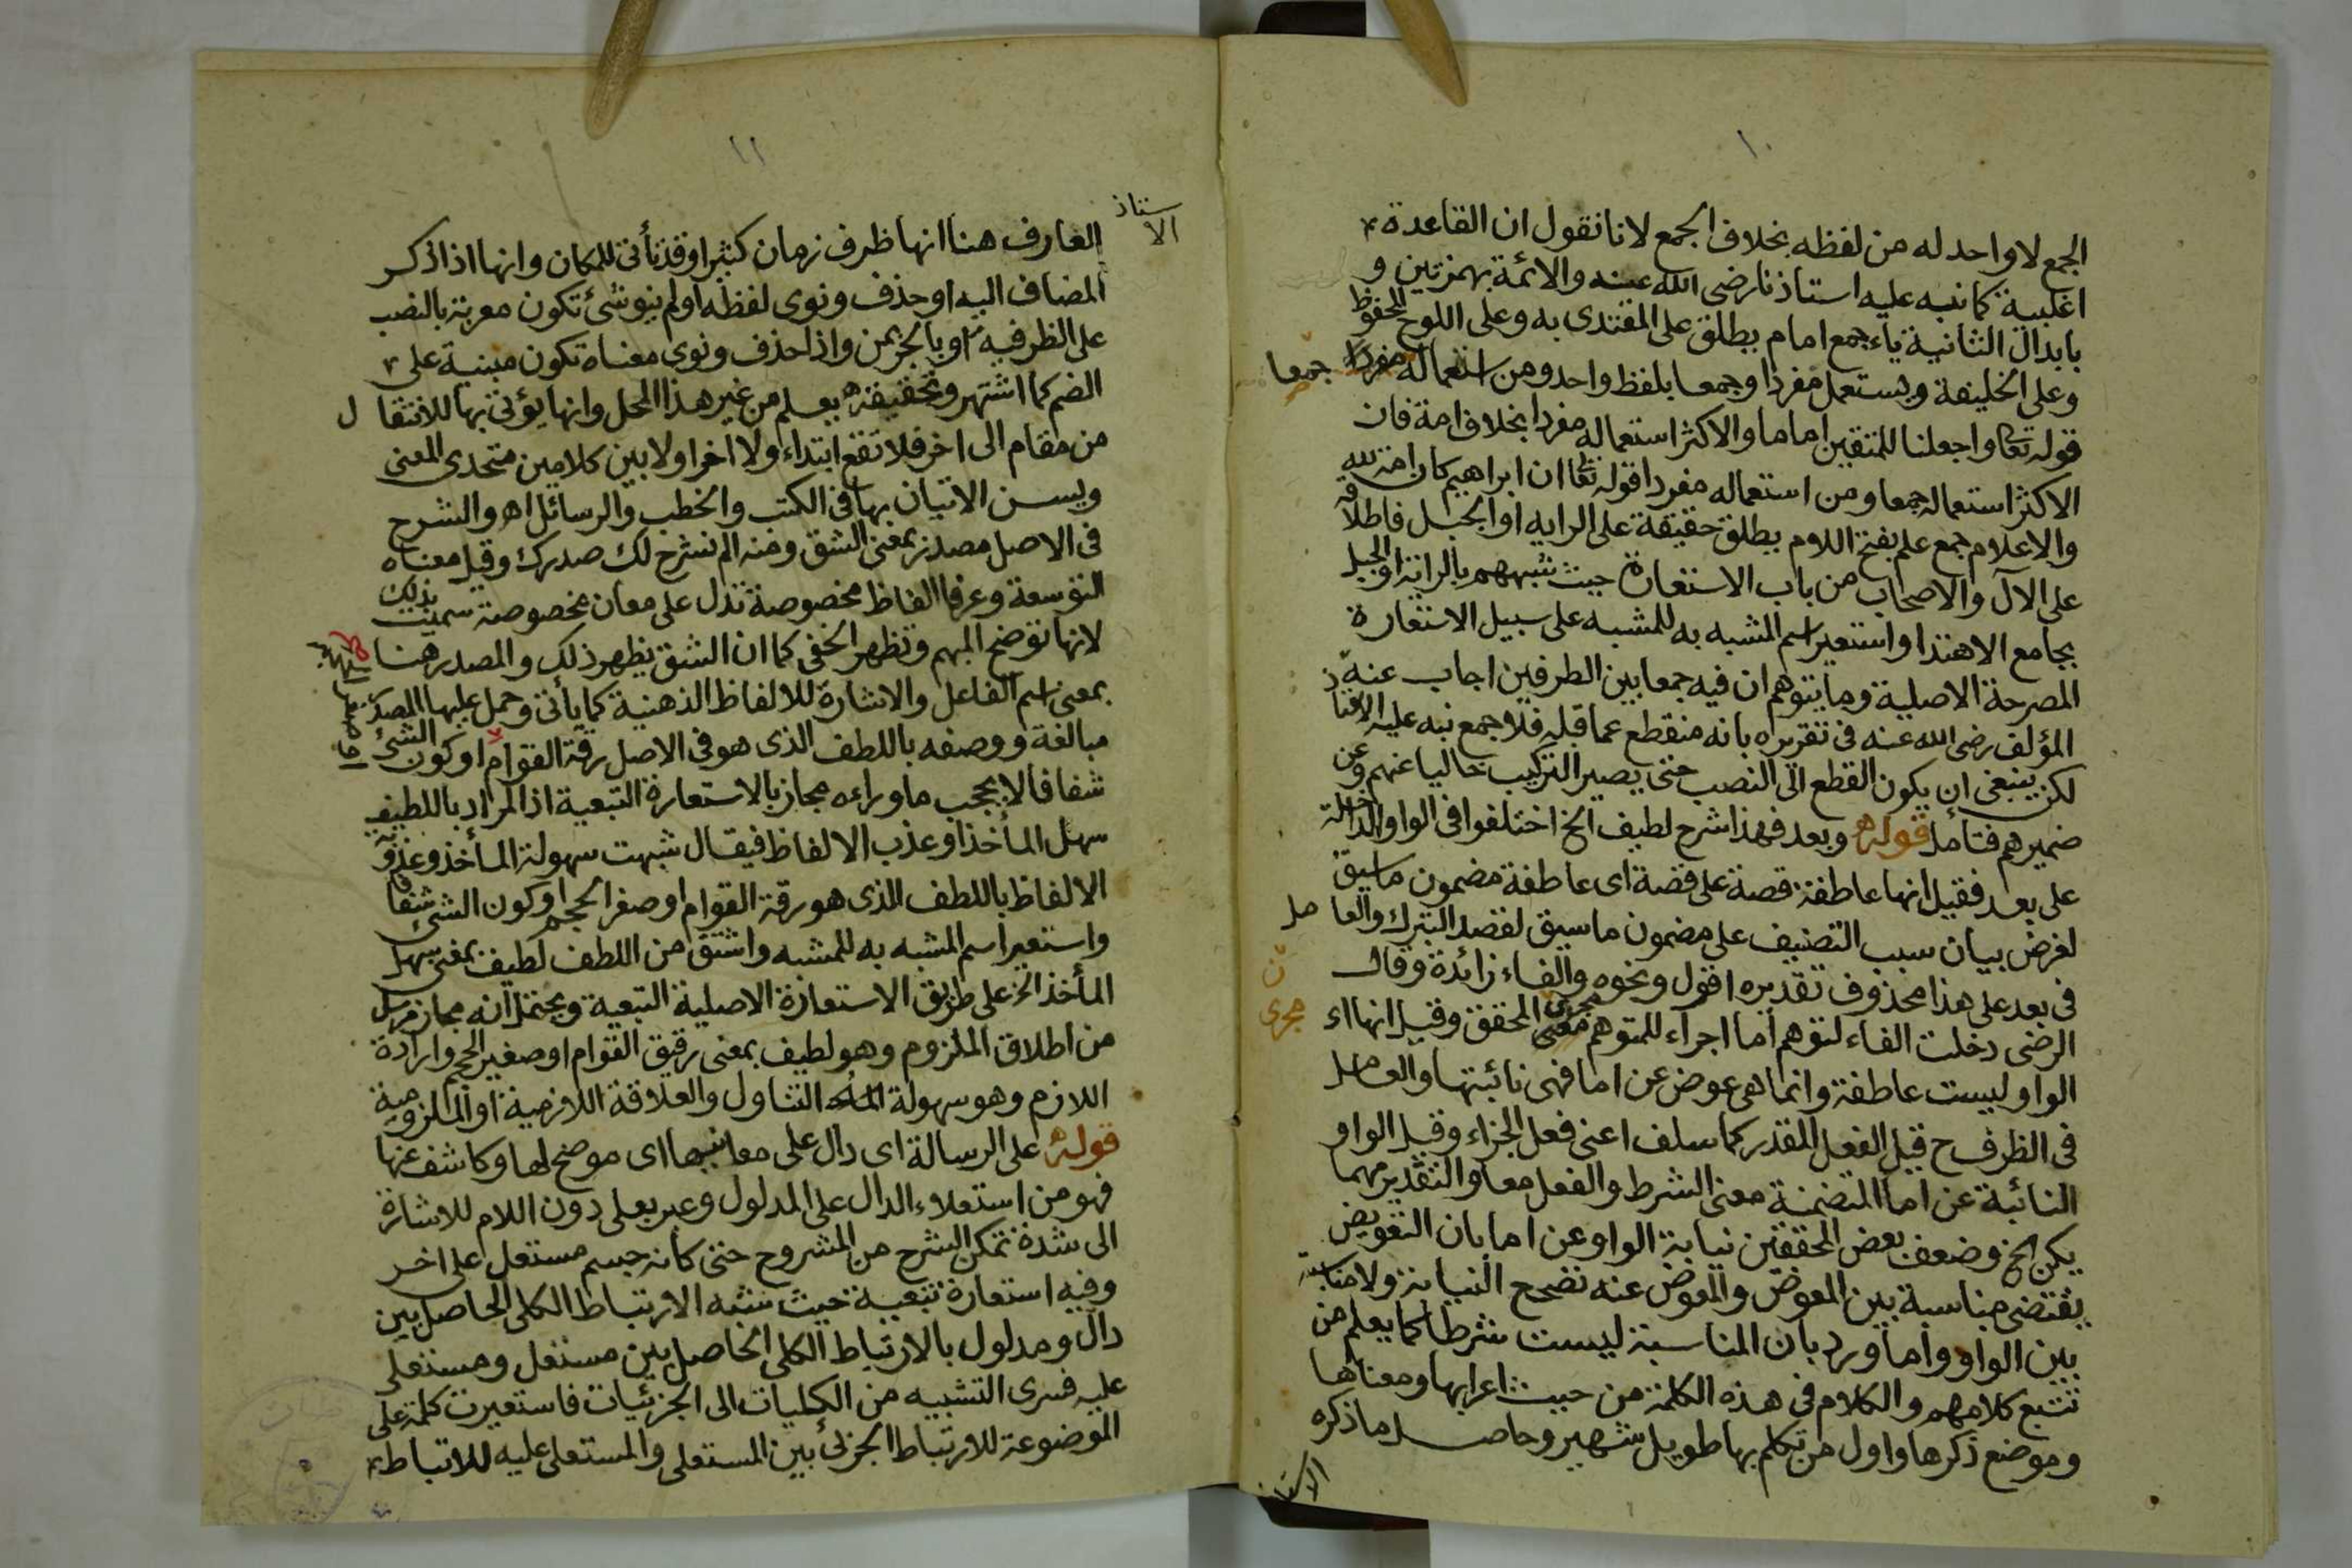 ١٠
الجمع لا واحد له من لفظه بخلاف الجمع لانا نقول ان القاعدة
اغلبية كما نبه عليه استاذنا رضى الله عنه والائمة بهمزتين و
بابدال الثانية ياء جمع امام يطلق على المقتدى به وعلى اللوح المحفوظ
وعلى الخليفة ويستعمل مفردا وجمعا بلفظ واحد ومن استعماله مفردا جمعا
قوله تعا واجعلنا للمتقين اماما والاكثر استعماله مفردا بخلاف امة فان
الاكثر استعماله جمعا ومن استعماله مفردا قوله تعا ان ابراهيم كان امة لله
والاعلام جمع علم بفتح اللام يطلق حقيقة على الراية او الجبل فاطلاقه
على الآل والاصحاب من باب الاستعارة حيث شبههم بالراية او الجبل
بجامع الاهتدا واستعير اسم المشبه به للمشبه على سبيل الاستعارة
المصرحة الاصلية وما يتوهم ان فيه جمعا بين الطرفين اجاب عنه
المؤلف رضى الله عنه فى تقريره بانه منقطع عما قبله فلا جمع نبه عليه
لكن ينبغى ان يكون القطع الى النصب حتى يصير التركيب خاليا عنهم وعن
ضميرهم فتأمل قوله وبعد فهذا شرح لطيف الخ اختلفوا فى الواو الداخلة
على بعد فقيل انها عاطفة قصة على قصة اى عاطفة مضمون ما سيق
لغرض بيان سبب التصنيف على مضمون ما سيق لقصد التبرك والعامل
فى بعد على هذا محذوف تقديره اقول ونحوه والفاء زائدة وقال
الرضى دخلت الفاء لتوهم أما اجراء للمتوهم معنى مجرى المحقق وقيل انها اء
جرى
الواو ليست عاطفة وانما هى عوض عن اما فهى نائبتها والعامل
فى الظرف ح قيل الفعل المقدر كما سلف اعنى فعل الجزاء وقيل الواو
النائبة عن اما المتضمنة معنى الشرط والفعل معا والتقدير مهما
يكن الخ وضعف بعض المحققين نيابة الواو عن اما بان التعويض
يقتضى مناسبة بين المعوض والمعوض عنه تصحح النيابة ولا مناسبة
بين الواو واما ورد بان المناسبة ليست شرطا كما يعلم من
تتبع كلامهم والكلام فى هذه الكلمة من حيث اعرابها ومعناها
وموضع ذكرها واول من تكلم بها طويل شهير وحاصل ما ذكره
الاستاذ
١١
الاستاذ
العارف هنا انها ظرف زمان كثيرا وقد تأتى للمكان وانها اذا ذكر
المضاف اليه او حذف ونوى لفظه او لم ينو شئ تكون معربة بالنصب
على الظرفية او بالجر بمن واذا حذف ونوى معناه تكون مبنية على
الضم كما اشتهر وتحقيقه يعلم من غير هذا المحل وانها يؤتى بها للانتقال
من مقام الى اخر فلا تقع ابتداء ولا اخرا ولا بين كلامين متحدى المعنى
ويسن الاتيان بها فى الكتب والخطب والرسائل اه والشرح
فى الاصل مصدر بمعنى الشق ومنه الم نشرح لك صدرك وقيل معناه
التوسعة وعرفا الفاظ مخصوصة تدل على معان مخصوصة سميت بذلك
لانها توضح المبهم وتظهر الخفى كما ان الشق يظهر ذلك والمصدر هنا
بمعنى اسم الفاعل والاشارة للالفاظ الذهنية كما يأتى وحمل عليها المصدر
مبالغة ووصفه باللطف الذى هو فى الاصل رقة القوام او كون الشئ
شفافا لا يحجب ما وراءه مجاز بالاستعارة التبعية اذ المراد باللطيف
سهل المأخذ او عذب الالفاظ فيقال شبهت سهولة المأخذ وعذوبة
الالفاظ باللطف الذى هو رقة القوام او صغر الحجم او كون الشئ شفافا
واستعير اسم المشبه به للمشبه واشتق من اللطف لطيف بمعنى سهل
المأخذ الخ على طريق الاستعارة الاصلية التبعية ويحتمل انه مجاز مرسل
من اطلاق الملزوم وهو لطيف بمعنى رقيق القوام او صغير الحجم وارادة
اللازم وهو سهولة التناول والعلاقة اللازمية او الملزومية
قوله على الرسالة اى دال على معانيها اى موضح لها وكاشف عنها
فهو من استعلاء الدال على المدلول وعبر بعلى دون اللام للاشارة
الى شدة تمكن الشرح من المشروح حتى كانه جسم مستعل على اخر
وفيه استعارة تبعية حيث شبه الارتباط الكلى الحاصل بين
دال ومدلول بالارتباط الكلى الحاصل بين مستعل ومستعلى
عليه فسرى التشبيه من الكليات الى الجزئيات فاستعيرت كلمة على
الموضوعة للارتباط الجزئى بين المستعلى والمستعلى عليه للاتباط